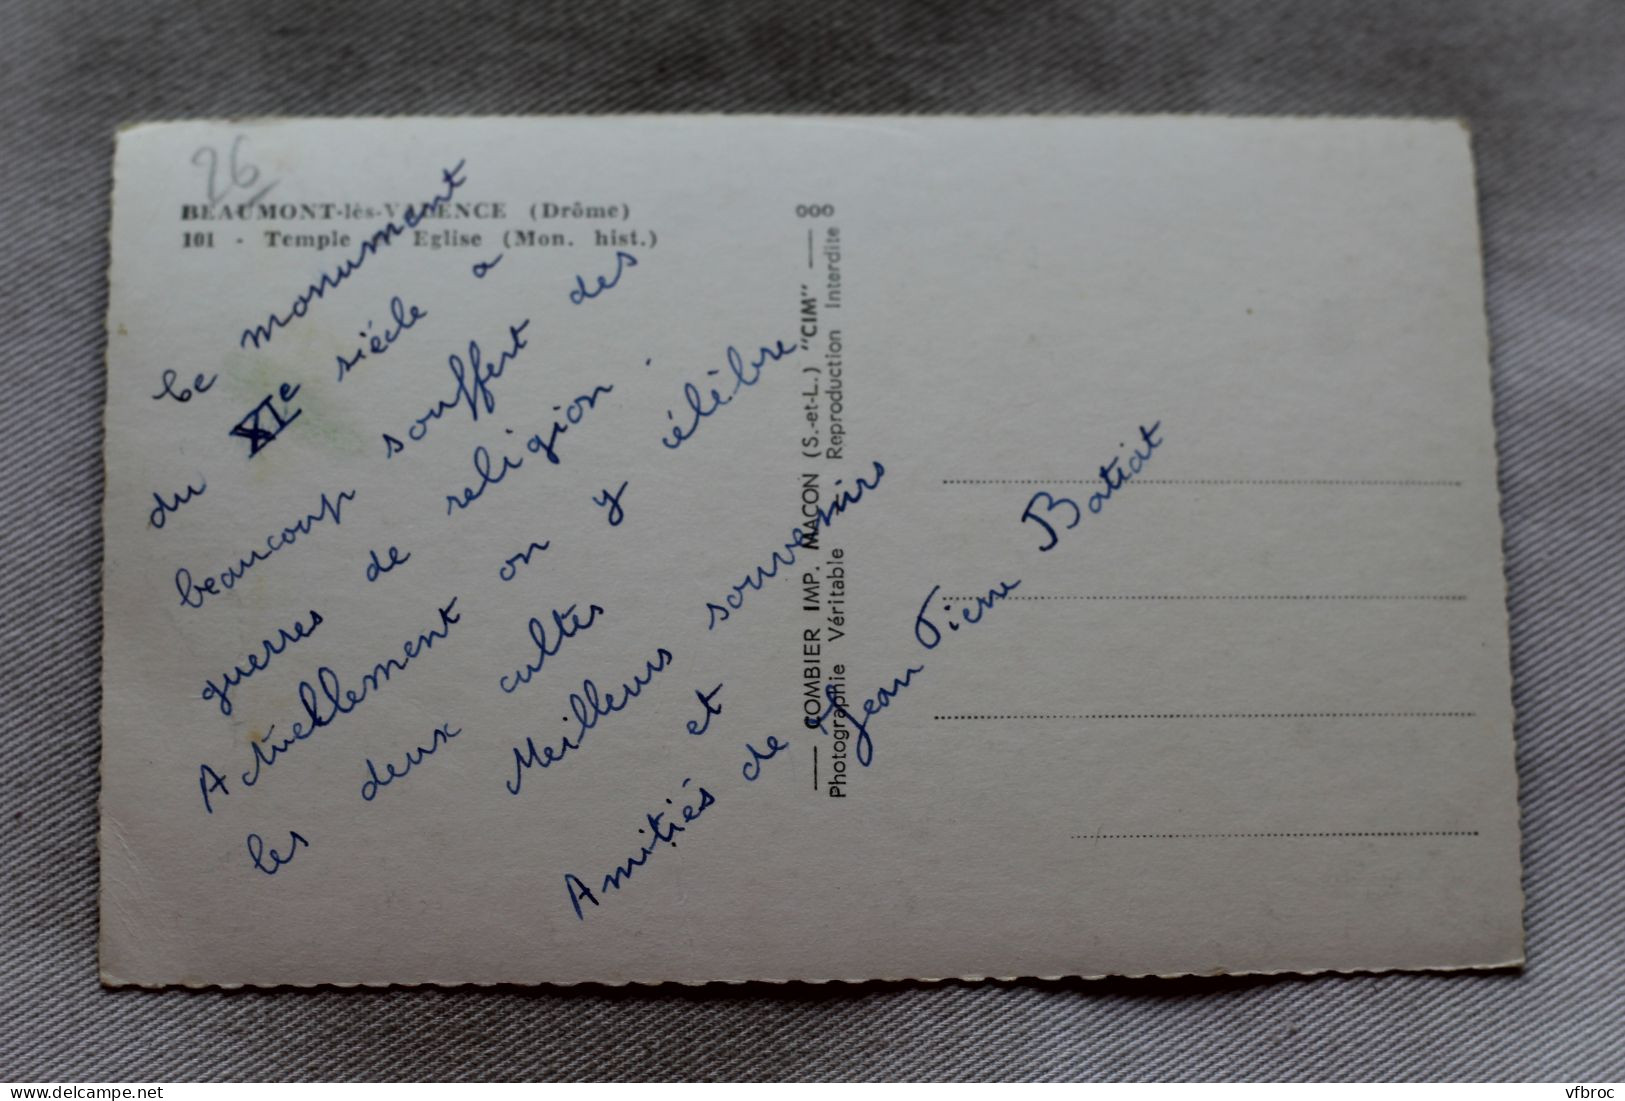 26
BEAUMONT-lès-VALENCE (Drôme)
101 - Temple - Eglise (Mon. hist.)
Ce monument
du XIe siècle a
beaucoup souffert des
guerres de religion.
Actuellement on y célèbre
les deux cultes
Meilleurs souvenirs
et
Amitiés de
Jean Pierre Batiat
COMBIER IMP. MACON (S.-et-L.) "CIM"
Photographie Véritable Reproduction Interdite
ooo
delcampe.net
vfbroc